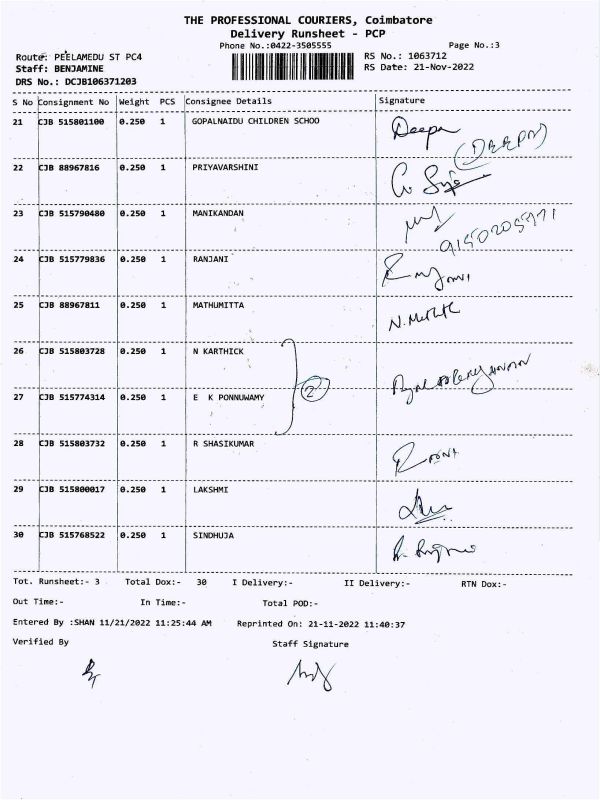 THE PROFESSIONAL COURIERS, Coimbatore
Delivery Runsheet - PCP
Phone No.:0422-3505555 Page No.:3
Route: PEELAMEDU ST PC4 RS No.: 1063712
Staff: BENJAMINE RS Date: 21-Nov-2022
DRS No.: DCJB106371203
S No Consignment No Weight PCS Consignee Details Signature
21 CJB 515801100 0.250 1 GOPALNAIDU CHILDREN SCHOO Deepa
(DEEPA)
22 CJB 88967816 0.250 1 PRIYAVARSHINI
23 CJB 515790480 0.250 1 MANIKANDAN
24 CJB 515779836 0.250 1 RANJANI
25 CJB 88967811 0.250 1 MATHUMITTA
26 CJB 515803728 0.250 1 N KARTHICK
2
27 CJB 515774314 0.250 1 E K PONNUWAMY
28 CJB 515803732 0.250 1 R SHASIKUMAR
29 CJB 515800017 0.250 1 LAKSHMI
30 CJB 515768522 0.250 1 SINDHUJA
Tot. Runsheet:- 3 Total Dox:- 30 I Delivery:- II Delivery:- RTN Dox:-
Out Time:- In Time:- Total POD:-
Entered By :SHAN 11/21/2022 11:25:44 AM Reprinted On: 21-11-2022 11:40:37
Verified By Staff Signature